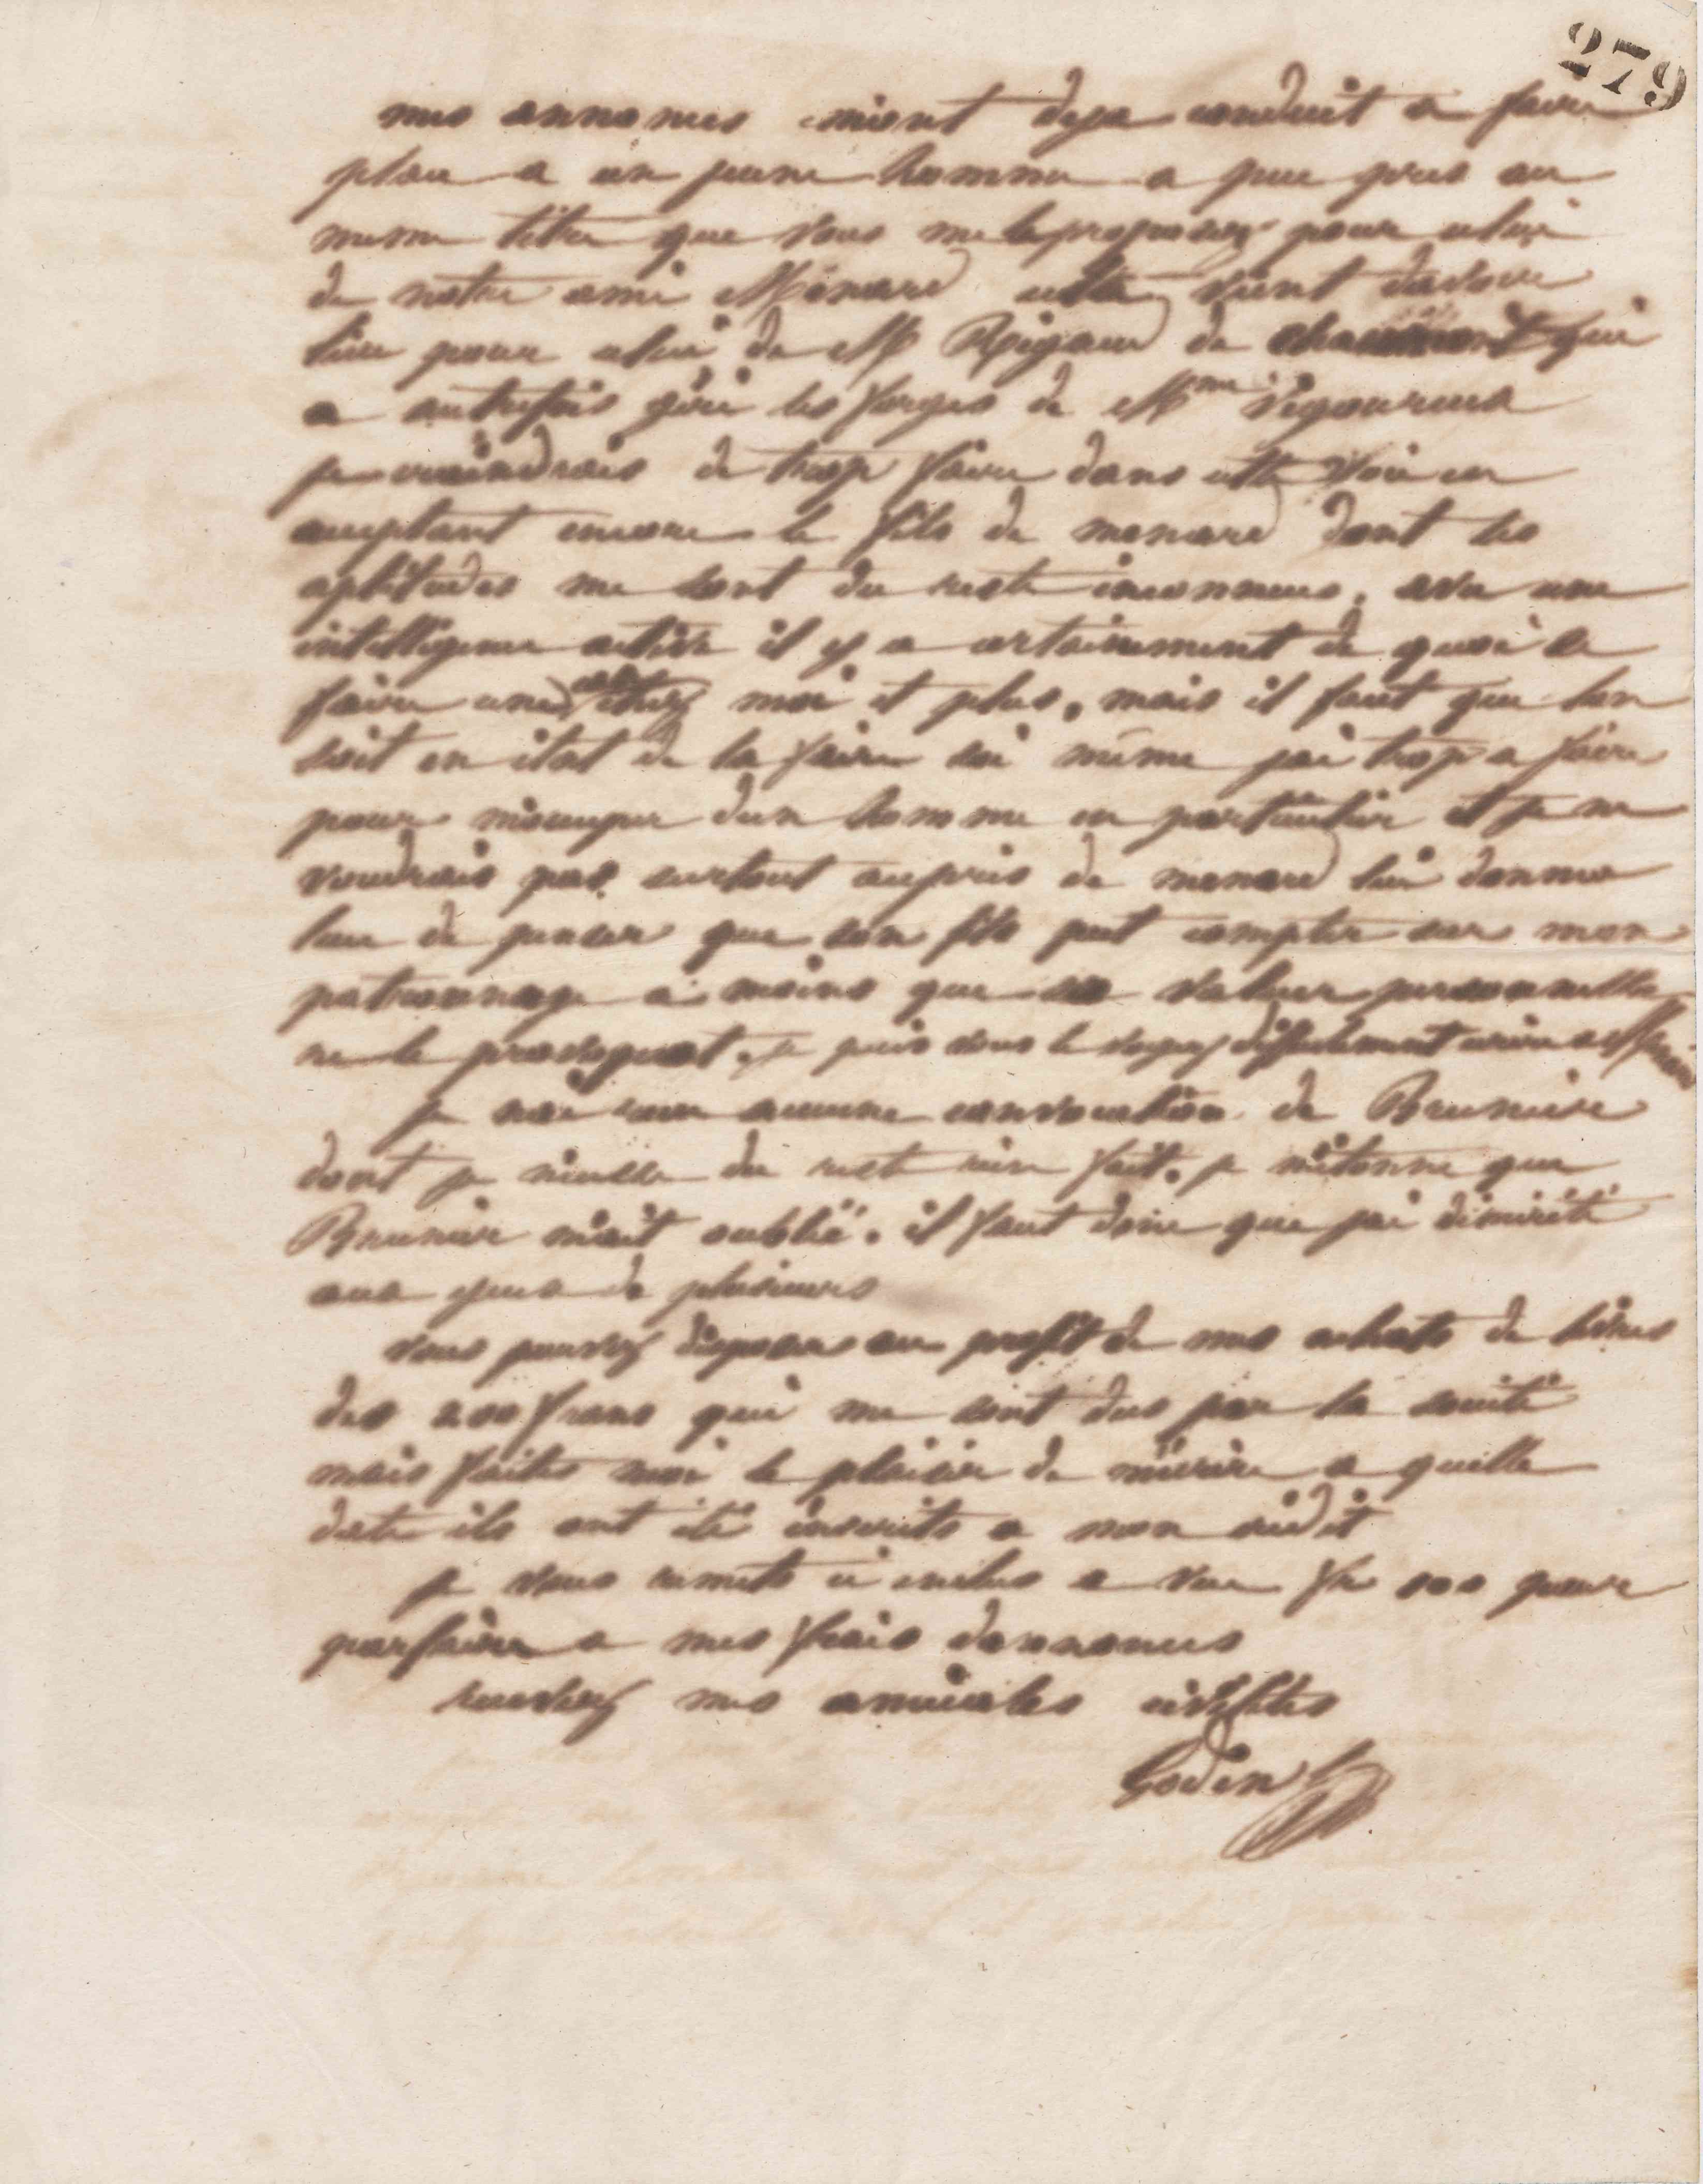 279
mes annonces m'ont deja conduit a faire
place a un jeune homme a peu pres au
meme titre que vous me le proposez pour celui
de notre ami Ménard cella vient davoir
lieu pour celui de Mr Rigaud de qui
a autrefois géré les forges de Mme Vigoureux
je craindrais de trop faire dans cette voie en
acceptant encore le fils de menard dont les
aptitudes me sont du reste inconnues. avec une
intelligence active il y a certainement de quoi se
faire une chez moi et plus, mais il faut que lon
soit en état de la faire soi même jai trop a faire
pour m'occuper d'un homme en particulier et je ne
voudrais pas surtout aupres de menard lui donner
lieu de penser que son fils put compter sur mon
patronnage a moins que sa valeur personnelle
ne le provoquat. je puis vous le voyez difficilement
je nai recu aucune convocation de Brunier
dont je n'eusse du reste rien fait. je m'étonne que
Brunier m'ait oublié. il faut donc que jai démérité
aux yeux de plusieurs
vous pouvez disposer au profit de mes achats de livres
des 200 francs qui me sont dus par la société
mais faites moi le plaisir de m'écrire a quelle
date ils ont été inscrits a mon crédit
je vous remets ci inclus a vue fr pour
parfaire a mes frais dannonces
recevez mes amicales civilités
Godin